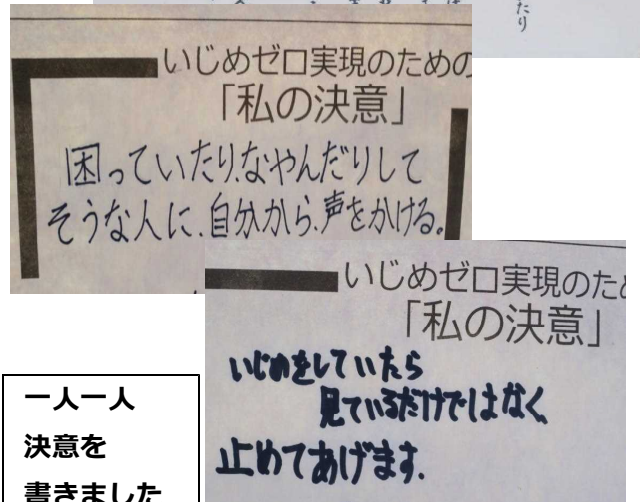 たり
いじめゼロ実現のための
「私の決意」
困っていたり、なやんだりして
そうな人に、自分から、声をかける。
いじめゼロ実現のため
「私の決意」
いじめをしていたら
見ているだけではなく
止めてあげます.
一人一人
決意を
書きました